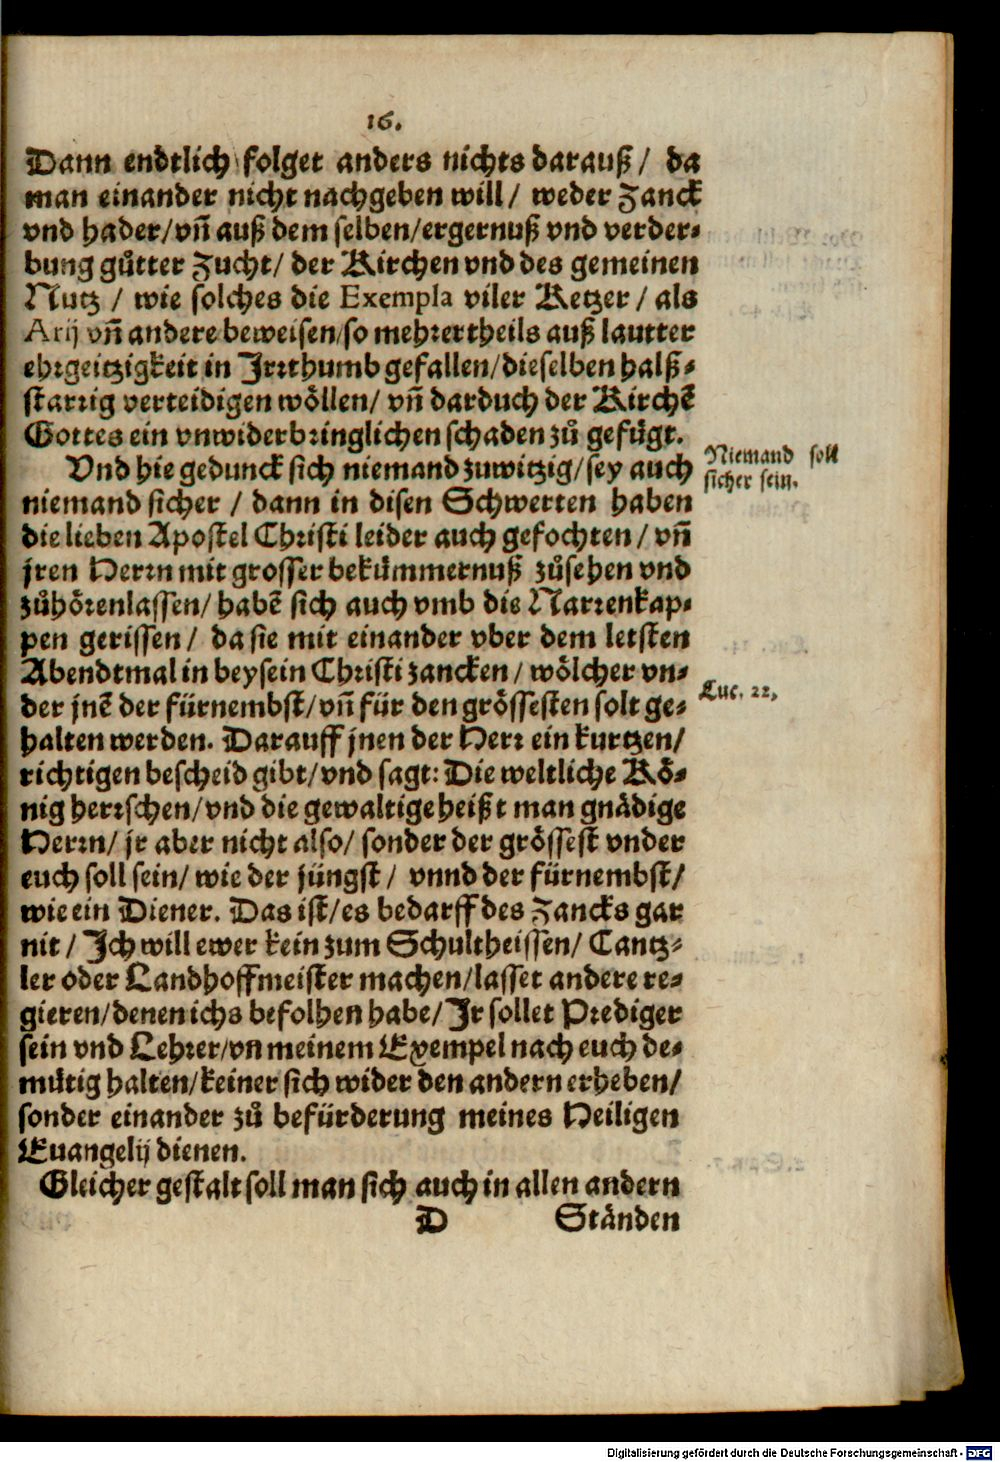 16.
Dann endtlich folget anders nichts darauß / da
man einander nicht nachgeben will / weder Zanck
vnd hader / vñ auß dem selben / ergernuß vnd verder-
bung gůtter Zucht / der Kirchen vnd des gemeinen
Nutz / wie solches die Exempla viler Ketzer / als
Arij vñ andere beweisen / so mehrertheils auß lautter
ehrgeitzigkeit in Irrthumb gefallen / dieselben halß-
starrig verteidigen wöllen / vñ darduch der Kirchẽ
Gottes ein vnwiderbringlichen schaden zů gefügt.
Vnd hie gedunck sich niemand zuwitzig / sey auch
Niemand soll
sicher sein.
niemand sicher / dann in disen Schwerten haben
die lieben Apostel Christi leider auch gefochten / vñ
jren Herrn mit grosser bekümmernuß zůsehen vnd
zůhörenlassen / habẽ sich auch vmb die Narrenkap-
pen gerissen / da sie mit einander vber dem letsten
Abendtmal in beysein Christi zancken / wölcher vn-
der jnẽ der fürnembst / vñ für den grössesten solt ge-
Luc. 22,
halten werden. Darauff jnen der Herr ein kurtzen /
richtigen bescheid gibt / vnd sagt: Die weltliche Kö-
nig herrschen / vnd die gewaltige heißt man gnädige
Herrn / jr aber nicht also / sonder der grössest vnder
euch soll sein / wie der jüngst / vnnd der fürnembst /
wie ein Diener. Das ist / es bedarff des Zancks gar
nit / Ich will ewer kein zum Schultheissen / Cantz-
ler oder Landhoffmeister machen / lasset andere re-
gieren / denen ichs befolhen habe / Ir sollet Prediger
sein vnd Lehrer / vn meinem Exempel nach euch de-
mütig halten / keiner sich wider den andern erheben /
sonder einander zů befürderung meines Heiligen
Euangelij dienen.
Gleicher gestalt soll man sich auch in allen andern
D Ständen
Digitalisierung gefördert durch die Deutsche Forschungsgemeinschaft - DFG